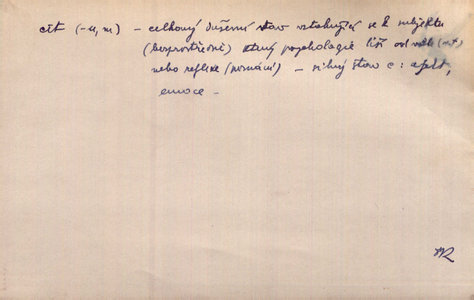 cit (-u, m) – celkový duševní stav vztahující se k subjektu
(bezprostředně) který psychologie liší od vůle
nebo reflexe (poznání) – silný stav c : afekt,
emoce –